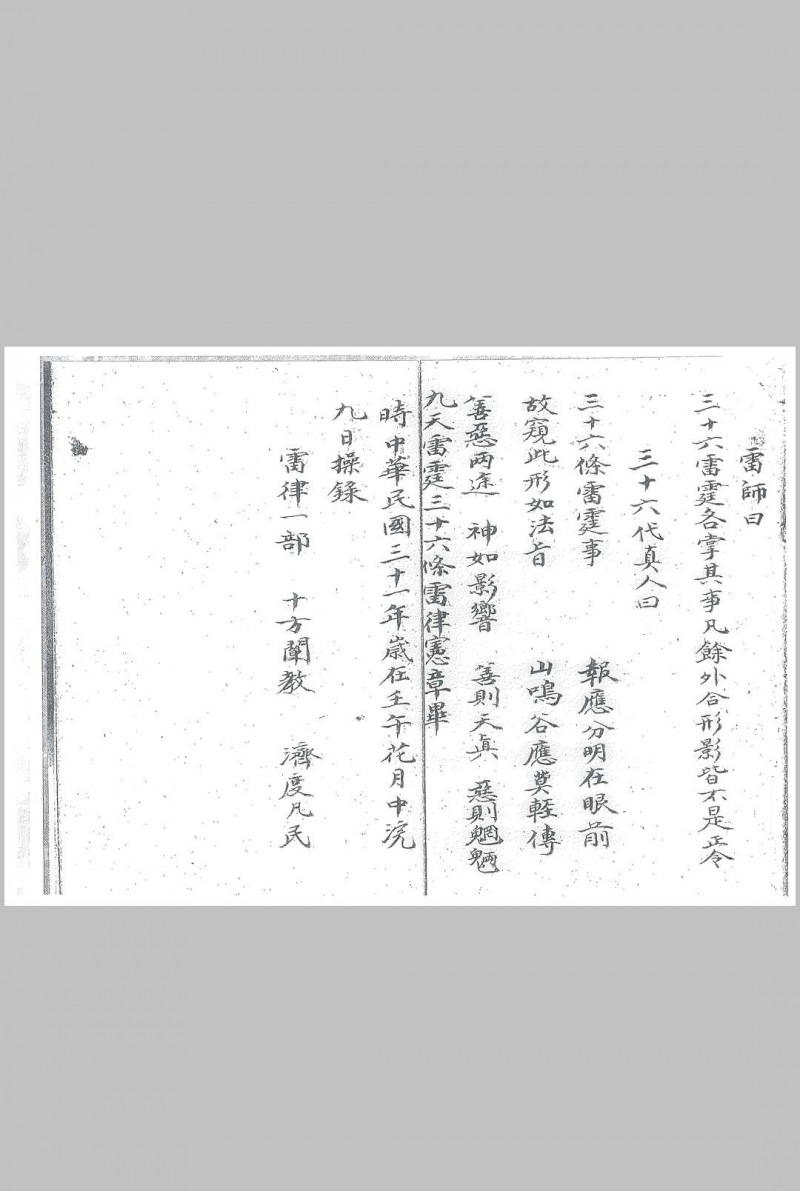 雷師曰
三十六雷霆各掌其事凡餘外合形影皆不是正令
三十六代真人曰
三十六條雷霆事 報應分明在眼前
故窺此形如法旨 山鳴谷應莫輕傳
善惡兩途 神如影響 善則天真 惡則魍魎
九天雷霆三十六條雷律憲章畢
時中華民國三十一年歲在壬午花月中浣
九日操錄
雷律一部 十方闡教 濟度凡民